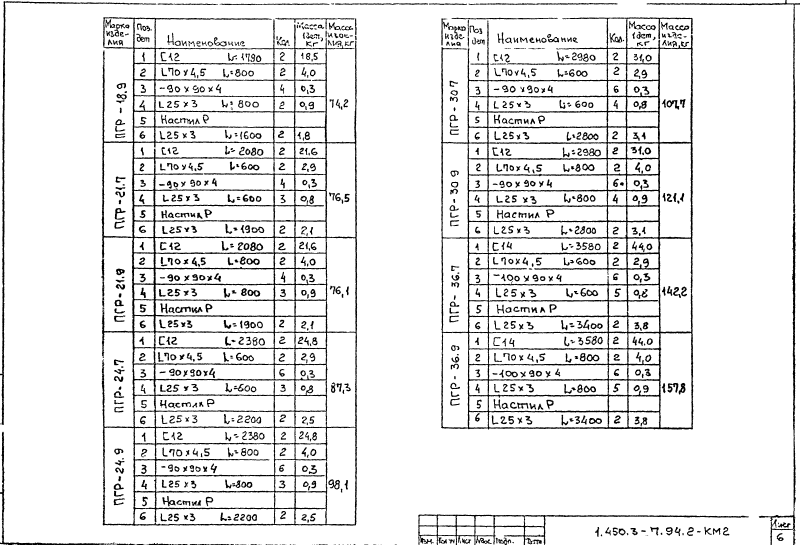 Марка изделия Поз. дет Наименование Кол. Масса 1дет, кг Масса изделия, кг
ПГР-18.9
1 [12 L=1790 2 18,5
2 L70×4,5 L=800 2 4,0
3 -90×90×4 4 0,3
4 L25×3 L=800 2 0,9 74,2
5 Настил Р
6 L25×3 L=1600 2 1,8
ПГР-21.7
1 [12 L=2080 2 21,6
2 L70×4,5 L=600 2 2,9
3 -90×90×4 4 0,3
4 L25×3 L=600 3 0,8 76,5
5 Настил Р
6 L25×3 L=1900 2 2,1
ПГР-21.9
1 [12 L=2080 2 21,6
2 L70×4,5 L=800 2 4,0
3 -90×90×4 4 0,3
4 L25×3 L=800 3 0,9 76,1
5 Настил Р
6 L25×3 L=1900 2 2,1
ПГР-24.7
1 [12 L=2380 2 24,8
2 L70×4,5 L=600 2 2,9
3 -90×90×4 6 0,3
4 L25×3 L=600 3 0,8 87,3
5 Настил Р
6 L25×3 L=2200 2 2,5
ПГР-24.9
1 [12 L=2380 2 24,8
2 L70×4,5 L=800 2 4,0
3 -90×90×4 6 0,3
4 L25×3 L=800 3 0,9 98,1
5 Настил Р
6 L25×3 L=2200 2 2,5
Марка изделия Поз. дет Наименование Кол. Масса 1дет, кг Масса изделия, кг
ПГР-30.7
1 [12 L=2980 2 31,0
2 L70×4,5 L=600 2 2,9
3 -90×90×4 6 0,3
4 L25×3 L=600 4 0,8 107,7
5 Настил Р
6 L25×3 L=2800 2 3,1
ПГР-30.9
1 [12 L=2980 2 31,0
2 L70×4,5 L=800 2 4,0
3 -90×90×4 6 0,3
4 L25×3 L=800 4 0,9 121,1
5 Настил Р
6 L25×3 L=2800 2 3,1
ПГР-36.7
1 [14 L=3580 2 44,0
2 L70×4,5 L=600 2 2,9
3 -100×90×4 6 0,3
4 L25×3 L=600 5 0,8 142,2
5 Настил Р
6 L25×3 L=3400 2 3,8
ПГР-36.9
1 [14 L=3580 2 44,0
2 L70×4,5 L=800 2 4,0
3 -100×90×4 6 0,3
4 L25×3 L=800 5 0,9 157,8
5 Настил Р
6 L25×3 L=3400 2 3,8
1.450.3-7.94.2-КМ2
Лист
6
Изм. Кол.уч Лист №док. Подп. Дата